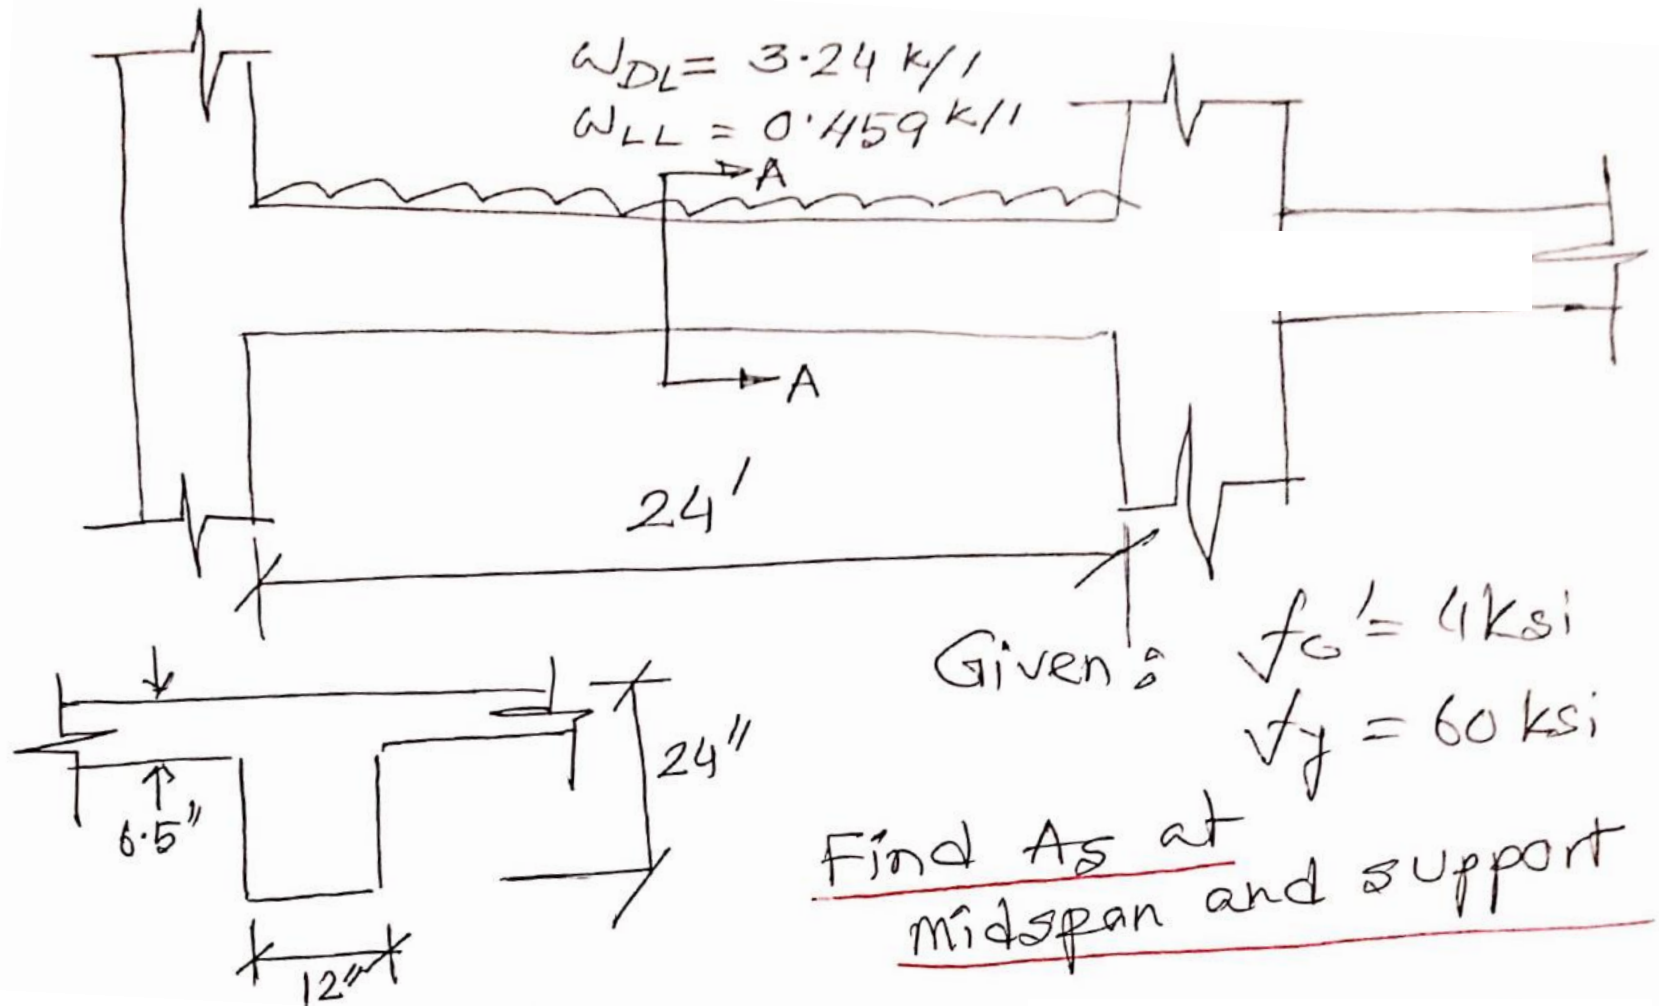 ωDL = 3.24 k/'
ωLL = 0.459 k/'
A
A
24'
Given: fc' = 4ksi
fy = 60 ksi
6.5"
24"
12"
Find As at
midspan and support